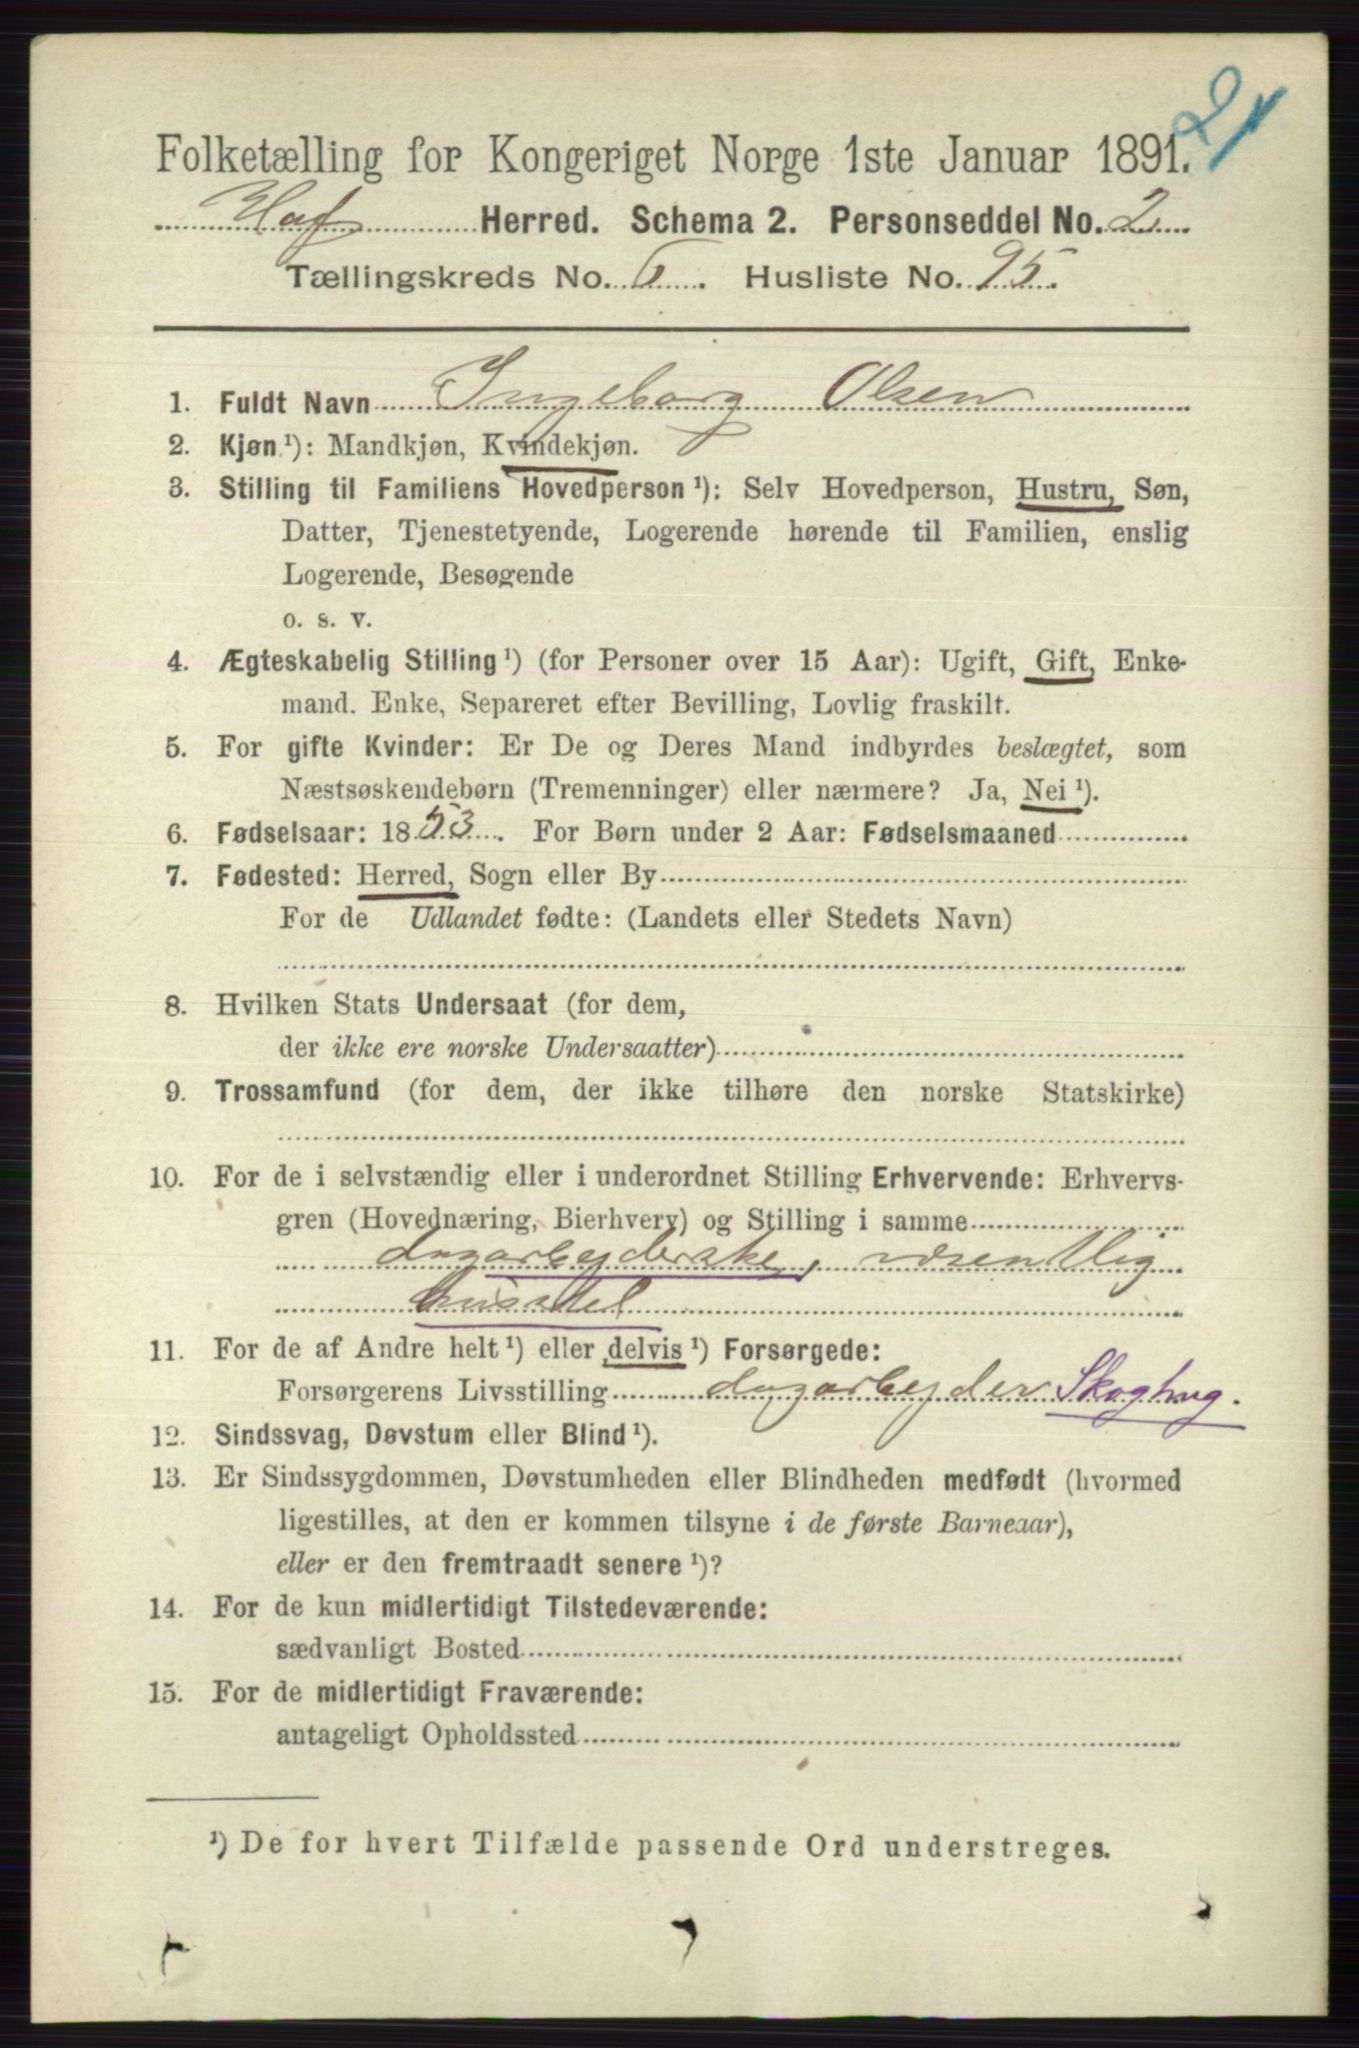 21
Folketælling for Kongeriget Norge 1ste Januar 1891.
Hof Herred. Schema 2. Personseddel No. 2
Tællingskreds No. 6. Husliste No. 95.
1. Fuldt Navn Ingeborg Olsen
2. Kjøn¹): Mandkjøn, Kvindekjøn.
3. Stilling til Familiens Hovedperson¹): Selv Hovedperson, Hustru, Søn,
Datter, Tjenestetyende, Logerende hørende til Familien, enslig
Logerende, Besøgende
o. s. v.
4. Ægteskabelig Stilling¹) (for Personer over 15 Aar): Ugift, Gift, Enke-
mand. Enke, Separeret efter Bevilling, Lovlig fraskilt.
5. For gifte Kvinder: Er De og Deres Mand indbyrdes beslægtet, som
Næstsøskendebørn (Tremenninger) eller nærmere? Ja, Nei¹).
6. Fødselsaar: 1853. For Børn under 2 Aar: Fødselsmaaned
7. Fødested: Herred, Sogn eller By
For de Udlandet fødte: (Landets eller Stedets Navn)
8. Hvilken Stats Undersaat (for dem,
der ikke ere norske Undersaatter)
9. Trossamfund (for dem, der ikke tilhøre den norske Statskirke)
10. For de i selvstændig eller i underordnet Stilling Erhvervende: Erhvervs-
gren (Hovednæring, Bierhverv) og Stilling i samme
dagarbejderske, væsentlig
husstel
11. For de af Andre helt¹) eller delvis¹) Forsørgede:
Forsørgerens Livsstilling dagarbejder Skoghug.
12. Sindssvag, Døvstum eller Blind¹).
13. Er Sindssygdommen, Døvstumheden eller Blindheden medfødt (hvormed
ligestilles, at den er kommen tilsyne i de første Barneaar),
eller er den fremtraadt senere¹)?
14. For de kun midlertidigt Tilstedeværende:
sædvanligt Bosted
15. For de midlertidigt Fraværende:
antageligt Opholdssted
¹) De for hvert Tilfælde passende Ord understreges.